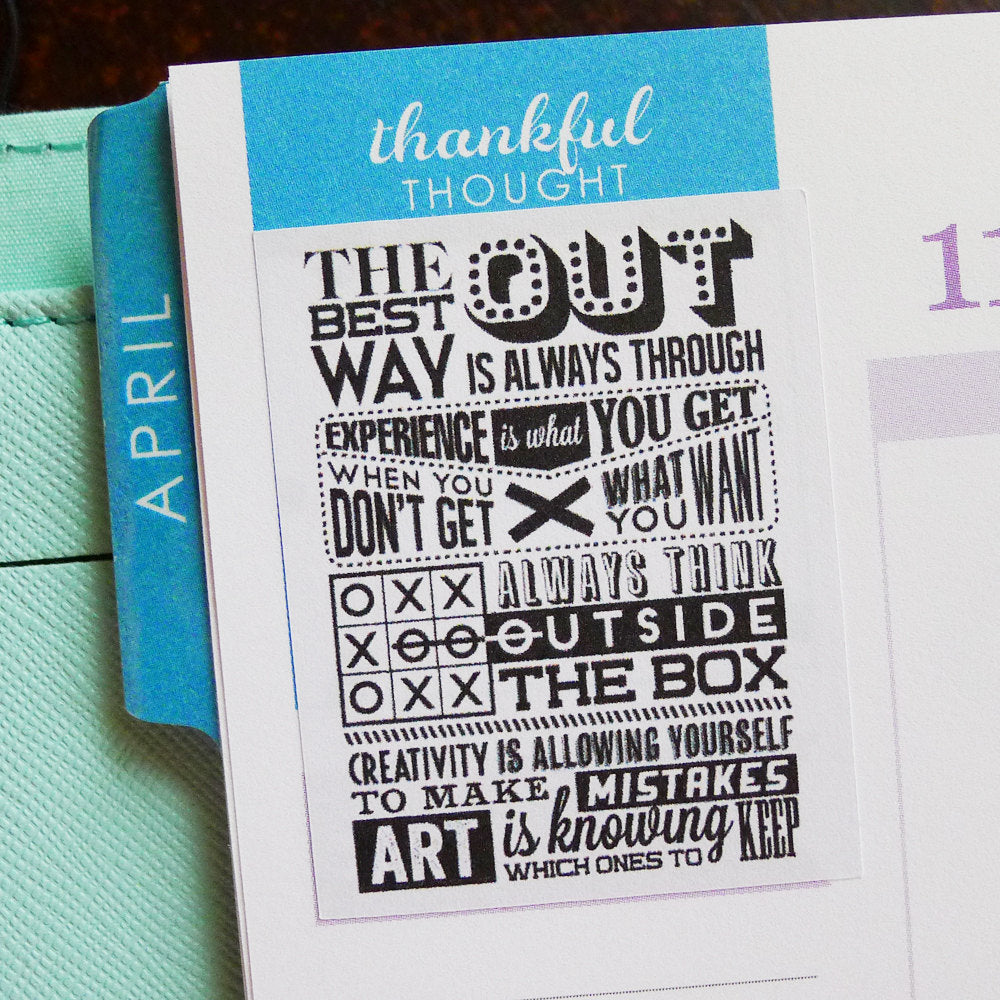 thankful
THOUGHT
APRIL
11
THE BEST OUT
WAY IS ALWAYS THROUGH
EXPERIENCE is what YOU GET
WHEN YOU
DON'T GET WHAT YOU WANT
OXX
XOO
OXX
ALWAYS THINK
OUTSIDE
THE BOX
CREATIVITY IS ALLOWING YOURSELF
TO MAKE MISTAKES
ART is knowing
WHICH ONES TO KEEP